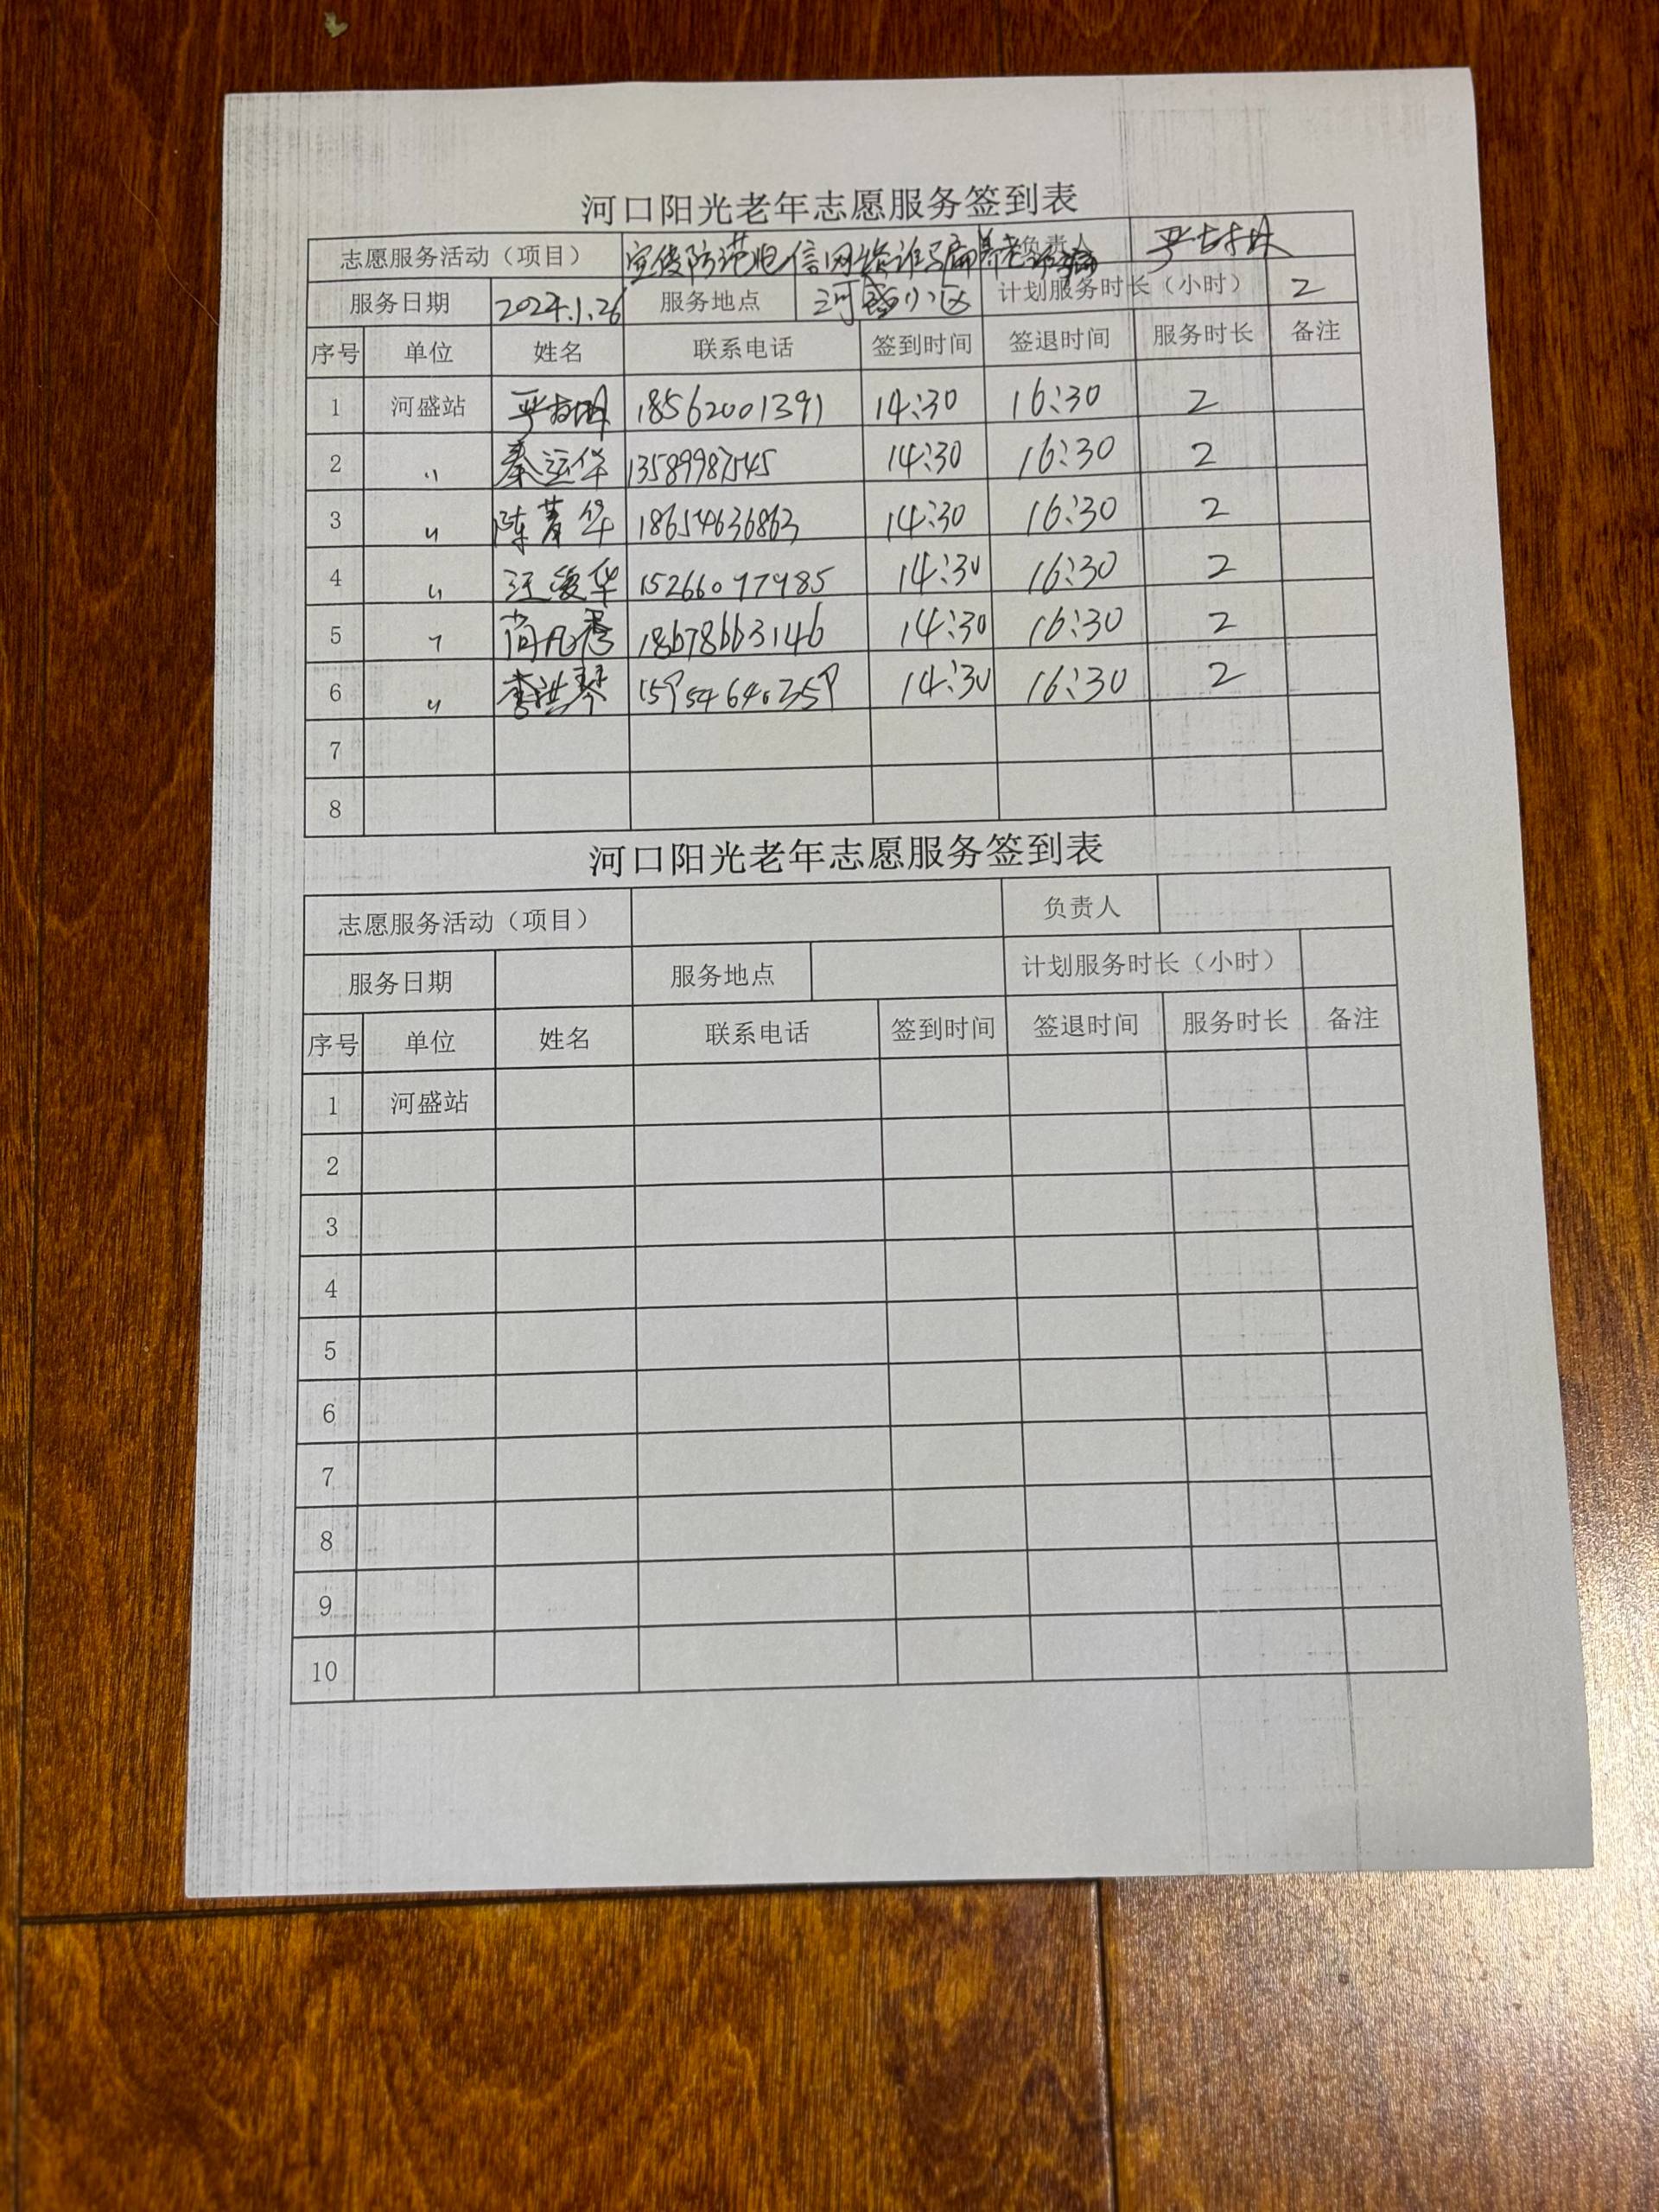 河口阳光老年志愿服务签到表
志愿服务活动（项目） 宣传防范电信网络诈骗养老诈骗 负责人 严
服务日期 2024.1.26 服务地点 河盛小区 计划服务时长（小时） 2
序号 单位 姓名 联系电话 签到时间 签退时间 服务时长 备注
1 河盛站 严 18562001391 14:30 16:30 2
2 〃 秦运华 13589987545 14:30 16:30 2
3 〃 陈菁华 18654636863 14:30 16:30 2
4 〃 汪爱华 15266097985 14:30 16:30 2
5 〃 尚凡秀 18678663146 14:30 16:30 2
6 〃 李洪琴 14:30 16:30 2
7
8
河口阳光老年志愿服务签到表
志愿服务活动（项目） 负责人
服务日期 服务地点 计划服务时长（小时）
序号 单位 姓名 联系电话 签到时间 签退时间 服务时长 备注
1 河盛站
2
3
4
5
6
7
8
9
10